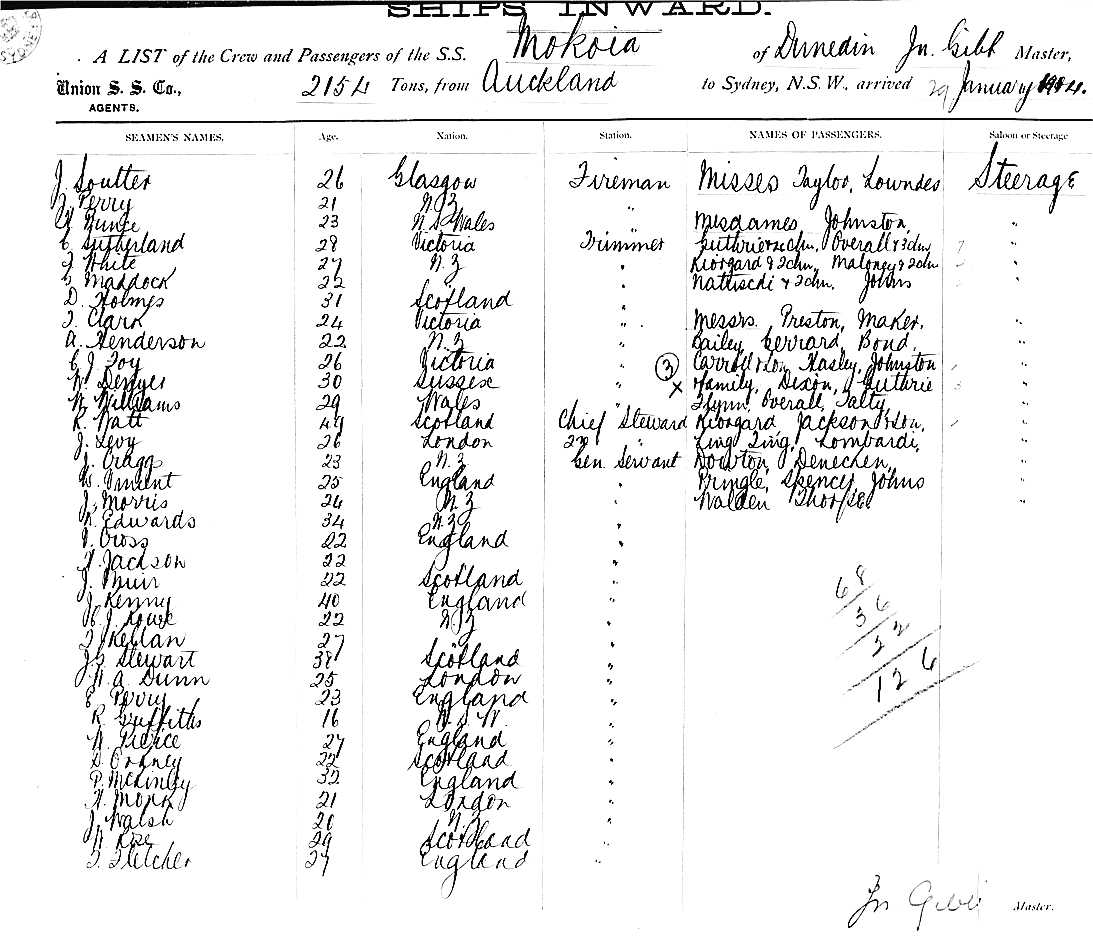 SHIPS INWARD.
SYDNEY
A LIST of the Crew and Passengers of the S.S. Mokoia of Dunedin Jn. Gibb Master,
Union S. S. Co., 2154 Tons, from Auckland to Sydney, N.S.W., arrived 29 January
AGENTS.
SEAMEN'S NAMES. Age. Nation. Station. NAMES OF PASSENGERS. Saloon or Steerage
J. Soutter 26 Glasgow Fireman Misses Taylor, Lowndes Steerage
Perry 21 N.Z " "
23 N.S. Wales " Misdames Johnston, "
C. Sutherland 28 Victoria Trimmer Guthrie & chn, Overall & 3 chn "
J. White 27 N.Z " Kiorgard & 2 chn, Maloney & 2 chn "
G. Maddock 22 " " Nattischi & 2 chn. Johns "
D. Holmes 31 Scotland "
J. Clark 24 Victoria " Messrs. Preston, Maker, "
A. Henderson 22 N.Z " Bailey, Gerrard, Bond, "
C. J. Foy 26 Victoria " (3) Carroll & Son, Hasley, Johnston "
W. Denyer 30 Sussex " x & family, Dixon, Guthrie "
W. Williams 29 Wales " Flynn, Overall, Talty, "
R. Watt 49 Scotland Chief Steward Kiorgard, Jackson & Son, "
J. Levy 26 London 2nd " Ling Ling, Lombardi, "
J. Cragg 23 N.Z Gen. Servant Dowton, Denechen, "
Vincent 25 England " Pringle, Spencer, Johns "
J. Morris 24 N.Z " Walden Thorpe "
R. Edwards 34 N.Z "
Cross 22 England "
Jackson 22 "
J. Muir 22 Scotland "
J. Kenny 40 England "
J. Rouse 22 N.Z "
J. Kellan 27 " "
Stewart 38 Scotland "
W. A. Dunn 25 London "
E. Perry 23 England "
R. Griffiths 16 N.S.W. "
W. Pierce 27 England "
D. Orkney 22 Scotland "
P. McKinley 32 England "
Monk 21 London "
J. Walsh 20 N.Z "
29 Scotland "
J. Fletcher 27 England "
68
36
22
126
Jn Gibb Master.